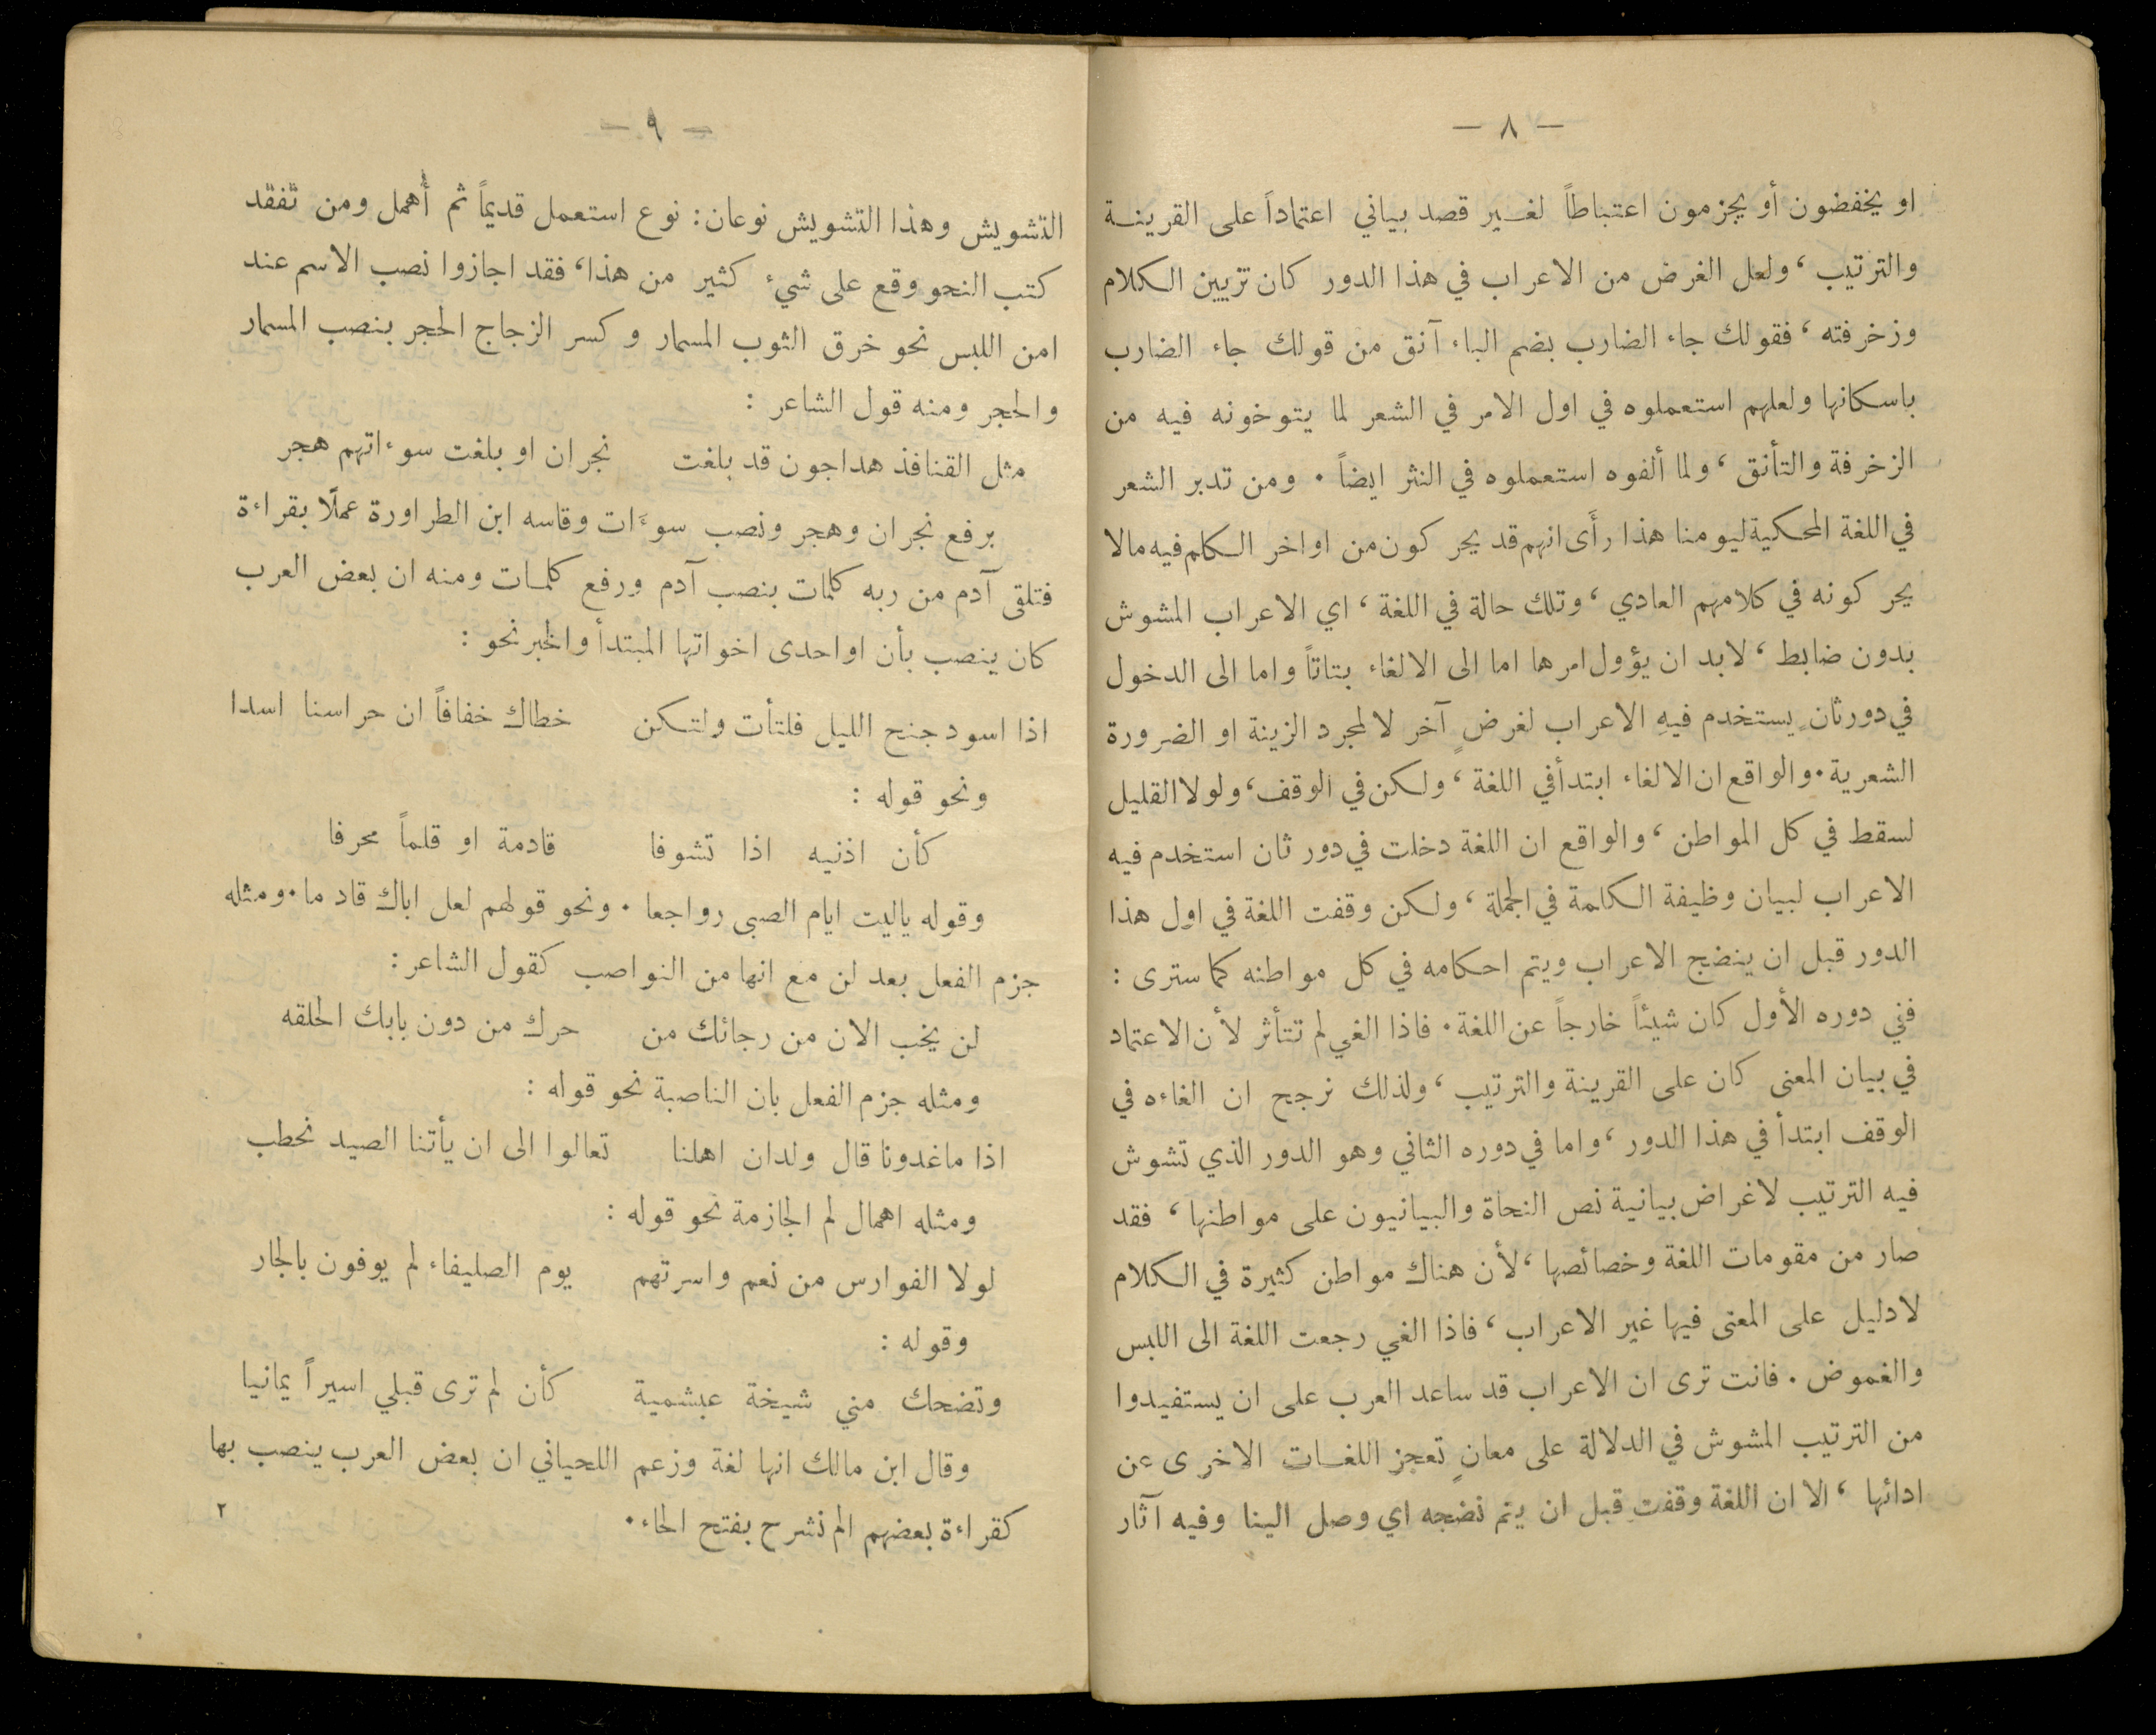 — ٨ —
او يخفضون أو يجزمون اعتباطاً لغير قصد بياني اعتماداً على القرينة
والترتيب ، ولعل الغرض من الاعراب في هذا الدور كان تزيين الكلام
وزخرفته ، فقولك جاء الضارب بضم الباء آنق من قولك جاء الضارب
باسكانها ولعلهم استعملوه في اول الامر في الشعر لما يتوخونه فيه من
الزخرفة والتأنق ، ولما ألفوه استعملوه في النثر ايضاً . ومن تدبر الشعر
في اللغة المحكية ليومنا هذا رأَى انهم قد يحركون من اواخر الكلم فيه مالا
يحركونه في كلامهم العادي ، وتلك حالة في اللغة ، اي الاعراب المشوش
بدون ضابط ، لابد ان يؤول امرها اما الى الالغاء بتاتاً واما الى الدخول
في دور ثانٍ يستخدم فيهِ الاعراب لغرضٍ آخر لا لمجرد الزينة او الضرورة
الشعرية . والواقع ان الالغاء ابتدأ في اللغة ، ولكن في الوقف ، ولولا القليل
لسقط في كل المواطن ، والواقع ان اللغة دخلت في دور ثان استخدم فيه
الاعراب لبيان وظيفة الكلمة في الجملة ، ولكن وقفت اللغة في اول هذا
الدور قبل ان ينضج الاعراب ويتم احكامه في كل مواطنه كما سترى :
ففي دوره الأول كان شيئاً خارجاً عن اللغة . فاذا الغي لم تتأثر لأن الاعتماد
في بيان المعنى كان على القرينة والترتيب ، ولذلك نرجح ان الغاءه في
الوقف ابتدأ في هذا الدور ، واما في دوره الثاني وهو الدور الذي تشوش
فيه الترتيب لاغراض بيانية نص النحاة والبيانيون على مواطنها ، فقد
صار من مقومات اللغة وخصائصها ، لأن هناك مواطن كثيرة في الكلام
لا دليل على المعنى فيها غير الاعراب ، فاذا الغي رجعت اللغة الى اللبس
والغموض . فانت ترى ان الاعراب قد ساعد العرب على ان يستفيدوا
من الترتيب المشوش في الدلالة على معانٍ تعجز اللغات الاخرى عن
ادائها ، الا ان اللغة وقفت قبل ان يتم نضجه اي وصل الينا وفيه آثار
— ٩ —
التشويش وهذا التشويش نوعان : نوع استعمل قديماً ثم أُهمل ومن تفقد
كتب النحو وقع على شيء كثير من هذا ، فقد اجازوا نصب الاسم عند
امن اللبس نحو خرق الثوب المسمار وكسر الزجاج الحجر بنصب المسمار
والحجر ومنه قول الشاعر :
مثل القنافذ هداجون قد بلغت نجران او بلغت سوءاتهم هجر
برفع نجران وهجر ونصب سوءَات وقاسه ابن الطراورة عملًا بقراءة
فتلقى آدم من ربه كلمات بنصب آدم ورفع كلمات ومنه ان بعض العرب
كان ينصب بأن او احدى اخواتها المبتدأ والخبر نحو :
اذا اسود جنح الليل فلتأت ولتكن خطاك خفافاً ان حراسنا اسدا
ونحو قوله :
كأن اذنيه اذا تشوفا قادمة او قلماً محرفا
وقوله ياليت ايام الصبى رواجعا . ونحو قولهم لعل اباك قاد ما . ومثله
جزم الفعل بعد لن مع انها من النواصب كقول الشاعر :
لن يخب الان من رجائك من حرك من دون بابك الحلقه
ومثله جزم الفعل بان الناصبة نحو قوله :
اذا ما غدونا قال ولدان اهلنا تعالوا الى ان يأتنا الصيد نحطب
ومثله اهمال لم الجازمة نحو قوله :
لولا الفوارس من نعم واسرتهم يوم الصليفاء لم يوفون بالجار
وقوله :
وتضحك مني شيخة عبشمية كأن لم ترى قبلي اسيراً يمانيا
وقال ابن مالك انها لغة وزعم اللحياني ان بعض العرب ينصب بها
كقراءة بعضهم الم نشرح بفتح الحاء .
٢